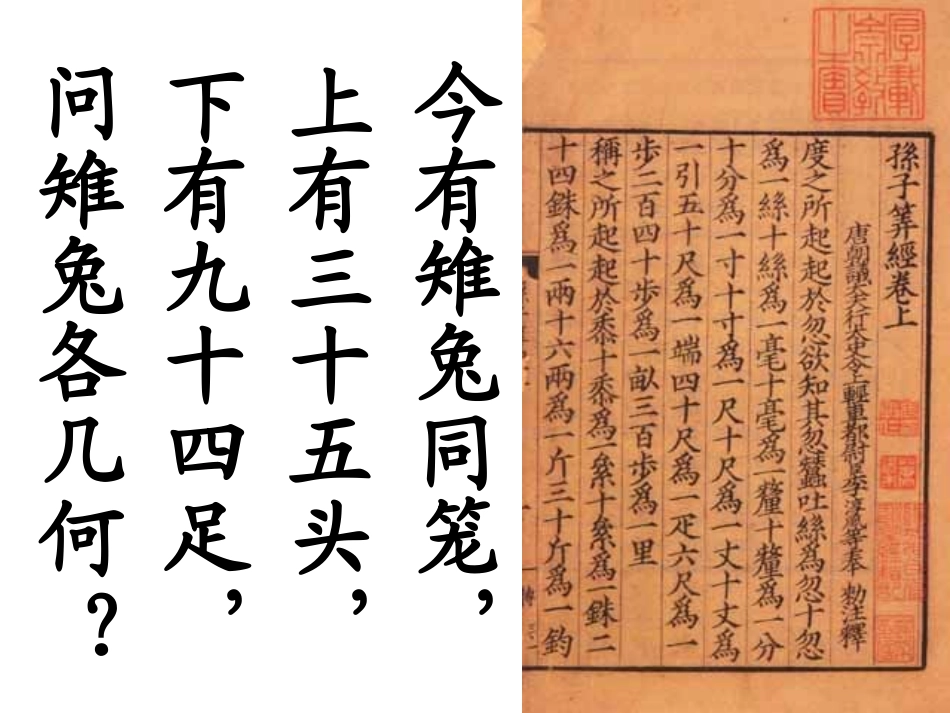 今有雉兔同笼，
上有三十五头，
下有九十四足，
问雉兔各几何？
孫子筭經卷上
唐朝議大夫行太史令上輕車都尉臣李淳風等奉 勑注釋
度之所起起於忽欲知其忽蠶吐絲為忽十忽
為一絲十絲為一毫十毫為一釐十釐為一分
十分為一寸十寸為一尺十尺為一丈十丈為
一引五十尺為一端四十尺為一疋六尺為一
步二百四十步為一畝三百步為一里
稱之所起起於黍十黍為一絫十絫為一銖二
十四銖為一兩十六兩為一斤三十斤為一鈞